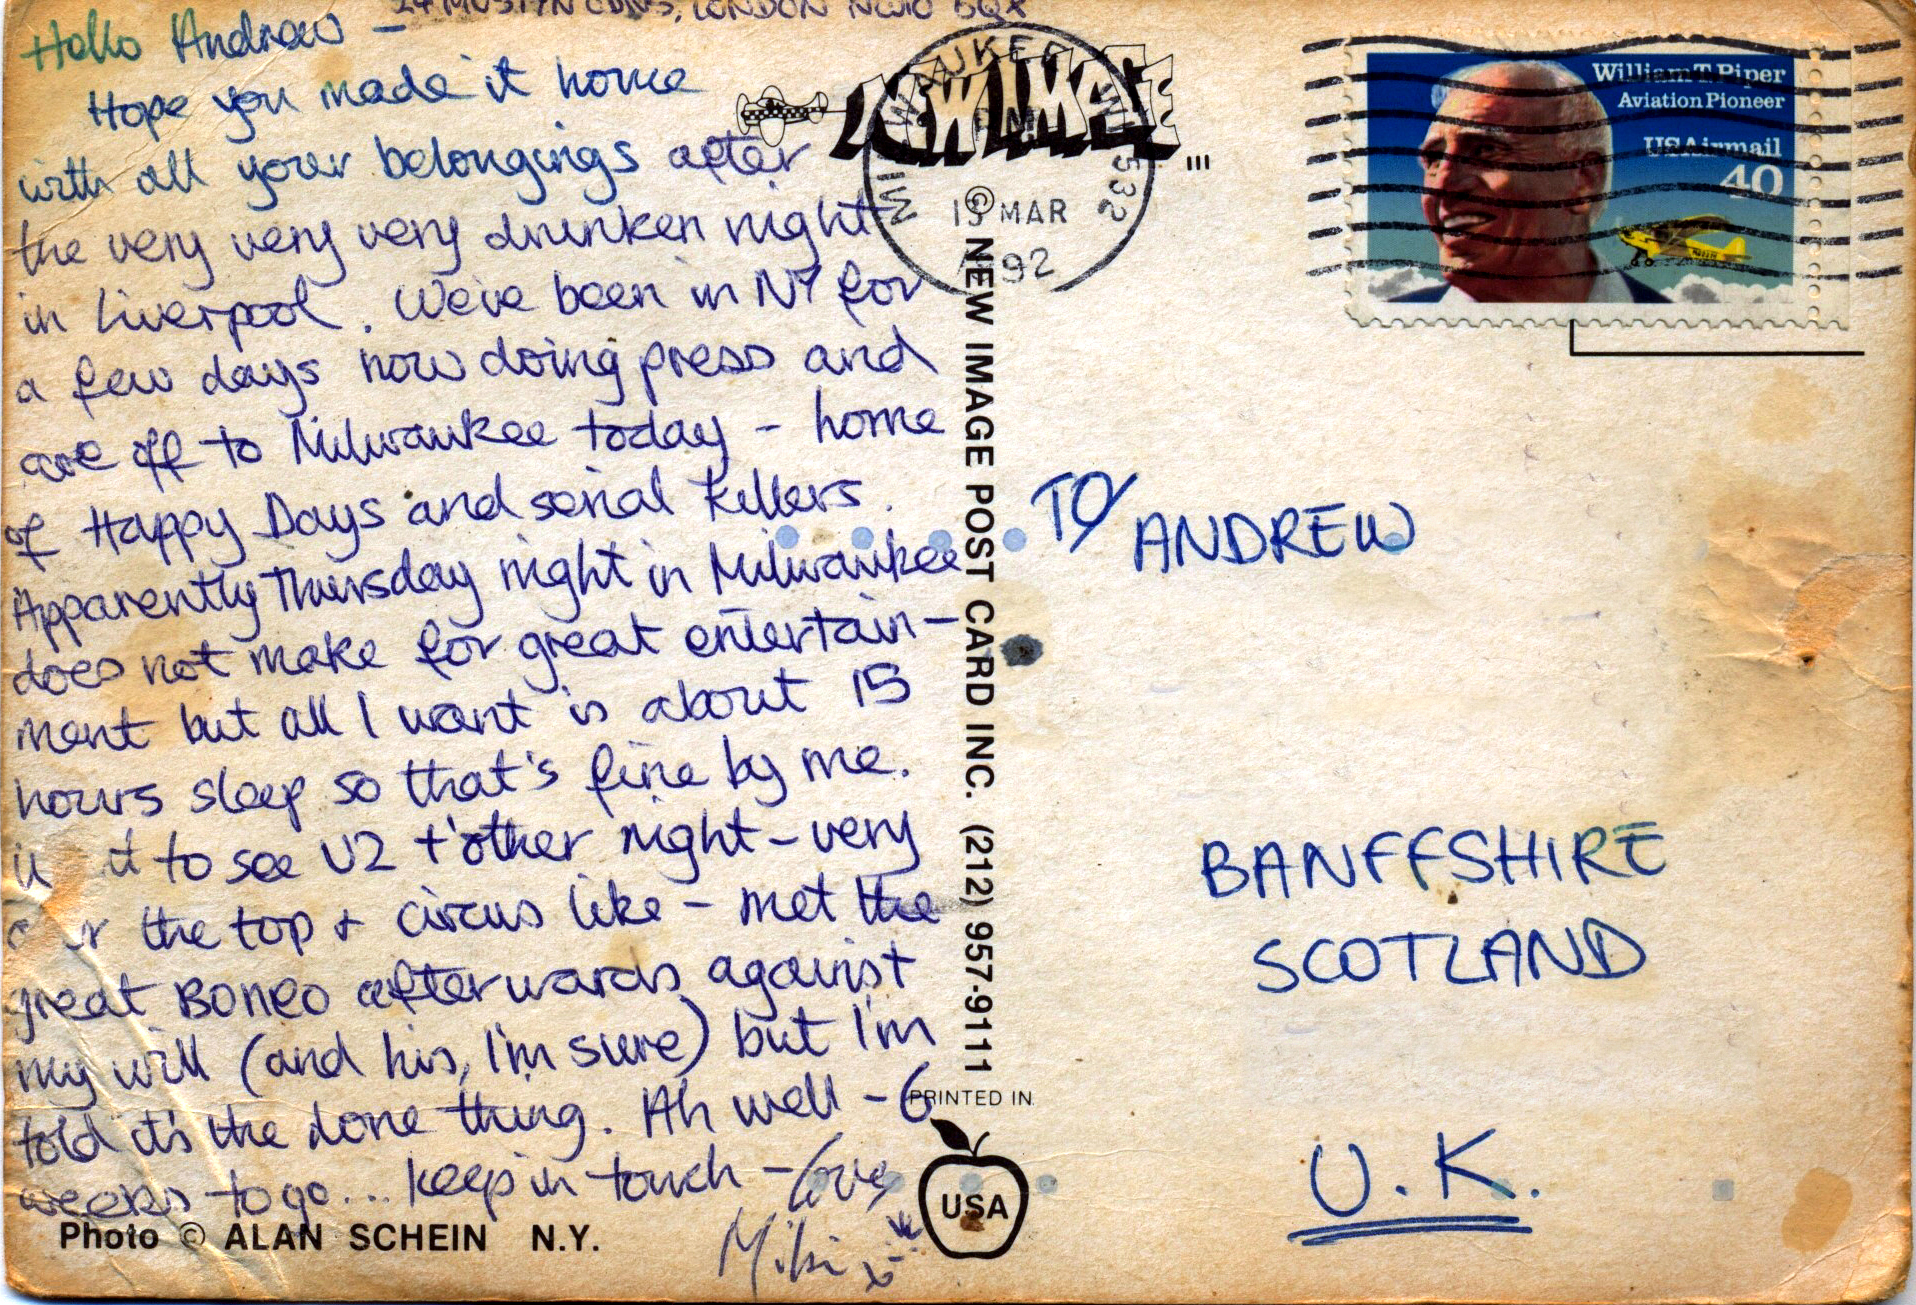 24 MOSTYN GDNS, LONDON NW10 5QX
Hello Andrew –
Hope you made it home
with all your belongings after
the very very very drunken night
in Liverpool. We've been in NY for
a few days now doing press and
are off to Milwaukee today – home
of Happy Days and serial killers.
Apparently Thursday night in Milwaukee
does not make for great entertain-
ment but all I want is about 15
hours sleep so that's fine by me.
to see U2 t'other night – very
over the top + circus like – met the
great Boneo afterwards against
my will (and his, I'm sure) but I'm
told it's the done thing. Ah well – 6
weeks to go... keep in touch – love
Miki x
Photo © ALAN SCHEIN N.Y.
NEW IMAGE...
© NEW IMAGE POST CARD INC. (212) 957-9111
PRINTED IN
USA
MILWAUKEE WI 532
PM
MAR
92
William T. Piper
Aviation Pioneer
USAirmail
40
TO/
ANDREW
BANFFSHIRE
SCOTLAND
U.K.